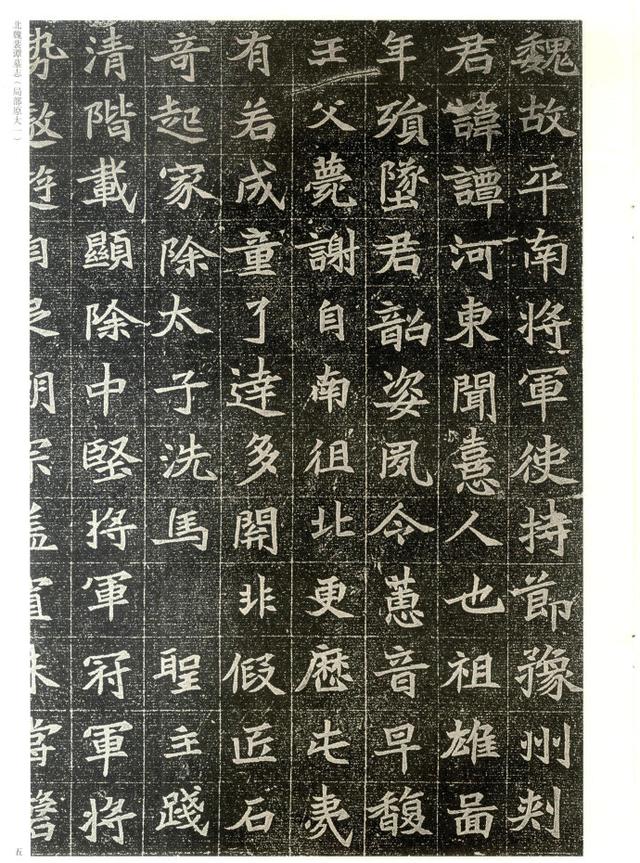 魏故平南将軍使持節豫州刾
君諱譚河東聞憙人也祖雄啚
年殞墜君韶姿夙令蕙音早馥
王父薨謝自南徂北更歷屯夷
有若成童了達多開非假匠石
奇起家除太子洗馬 聖主踐
清階載顯除中堅将軍冠軍将
勢遨遊自足
北魏裴谭墓志（局部原大一）
五